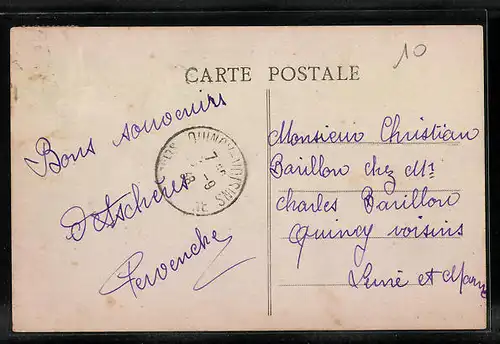 10
CARTE POSTALE
Bons souvenirs
d'Aschères
Pervenche
QUINCY-VOISINS
Monsieur Christian
Barillon chez Mr
Charles Barillon
Quincy voisins
Seine et Marne